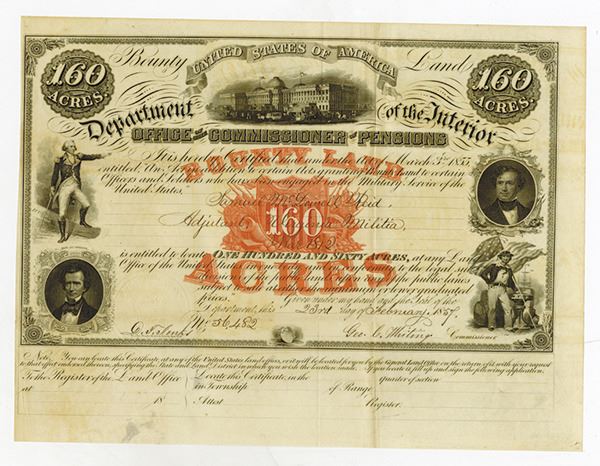 Bounty Land
UNITED STATES OF AMERICA
160 ACRES.
160 ACRES.
Department of the Interior
OFFICE OF THE COMMISSIONER OF PENSIONS
It is hereby Certified that under the Act March 3rd 1855
entitled, An Act in addition to certain Acts granting Bounty Land to certain
Officers and Soldiers who have been engaged in the Military Service of the
United States,
BOUNTY LAND
160
ACRES
Samuel McDowell Reid
Adjutant Virginia Militia,
War 1812
is entitled to locate ONE HUNDRED AND SIXTY ACRES, at any Land
Office of the United States in one body in conformity to the legal sub
divisions of the public lands upon any of the public lands
subject to sale at either the minimum or lower graduated
prices. Given under my hand and the Seal of the
Department, this 23rd day of February 1857.
No. 36,482
Geo. C. Whiting Commissioner
Note. You can locate this Certificate, at any of the United States land offices, or it will be located for you by the General Land Office on the return of it with your request
to that effect endorsed thereon, specifying the State and Land District in which you wish the location made. If you locate it, fill up and sign the following application.
To the Register of the Land Office Locate this Certificate, in the quarter of section
at in Township of Range
18 Attest Register.